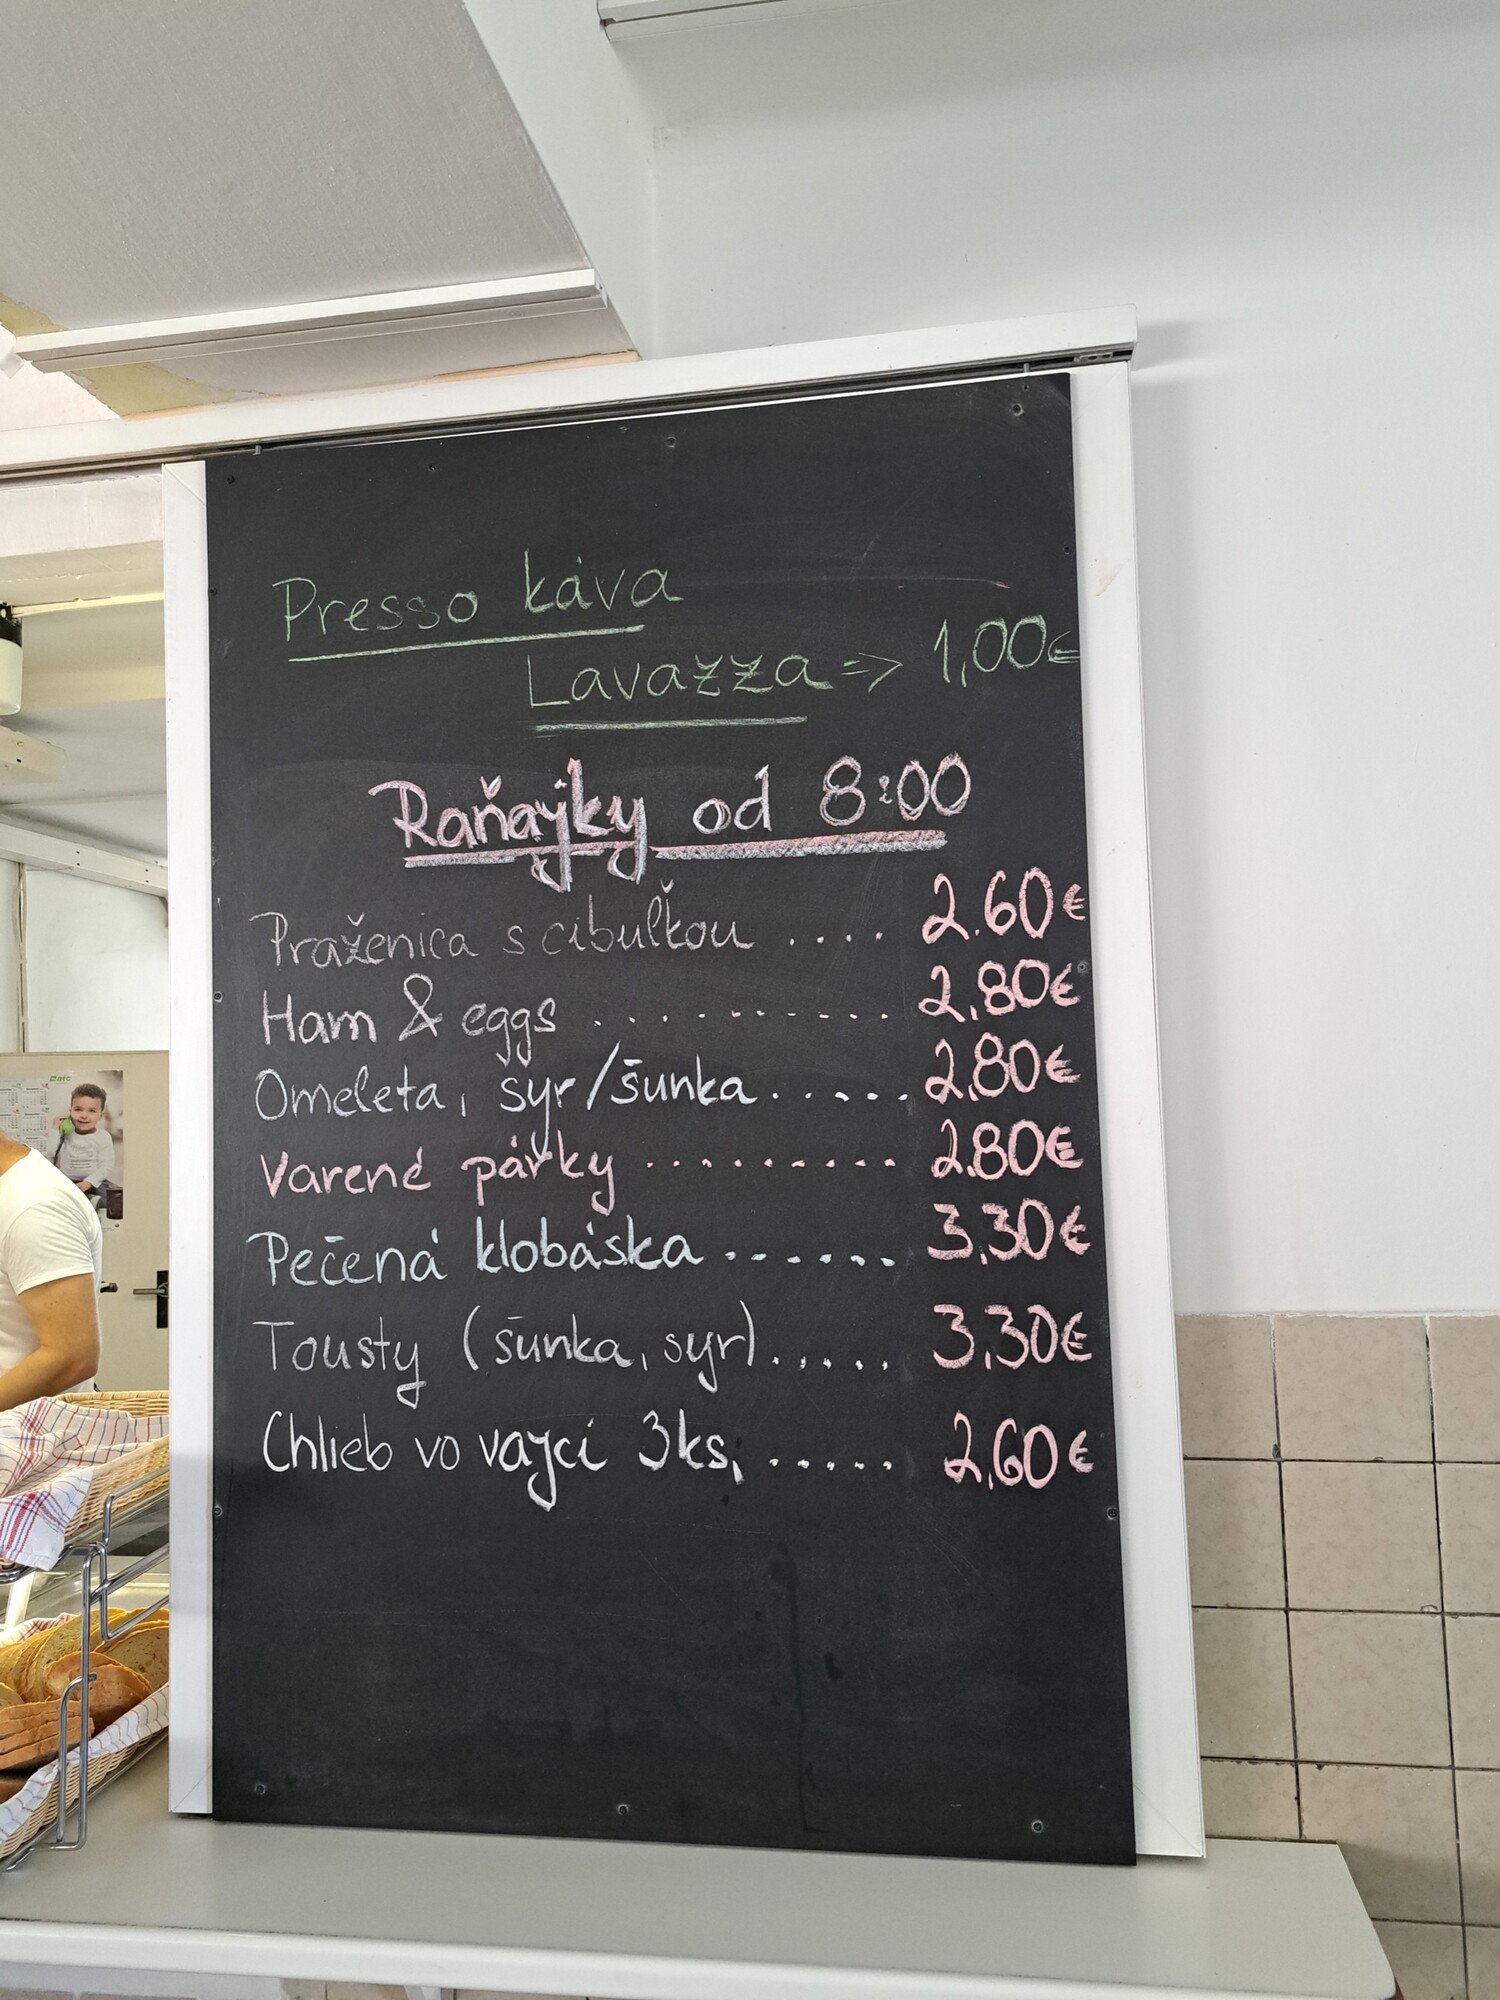 Presso káva
Lavazza => 1,00€
Raňajky od 8:00
Praženica s cibuľkou .... 2.60€
Ham & eggs .......... 2,80€
Omeleta, syr/šunka ...... 2,80€
Varené párky .......... 2.80€
Pečená klobáska ....... 3,30€
Tousty (šunka, syr)..... 3,30€
Chlieb vo vajci 3ks, ..... 2,60€